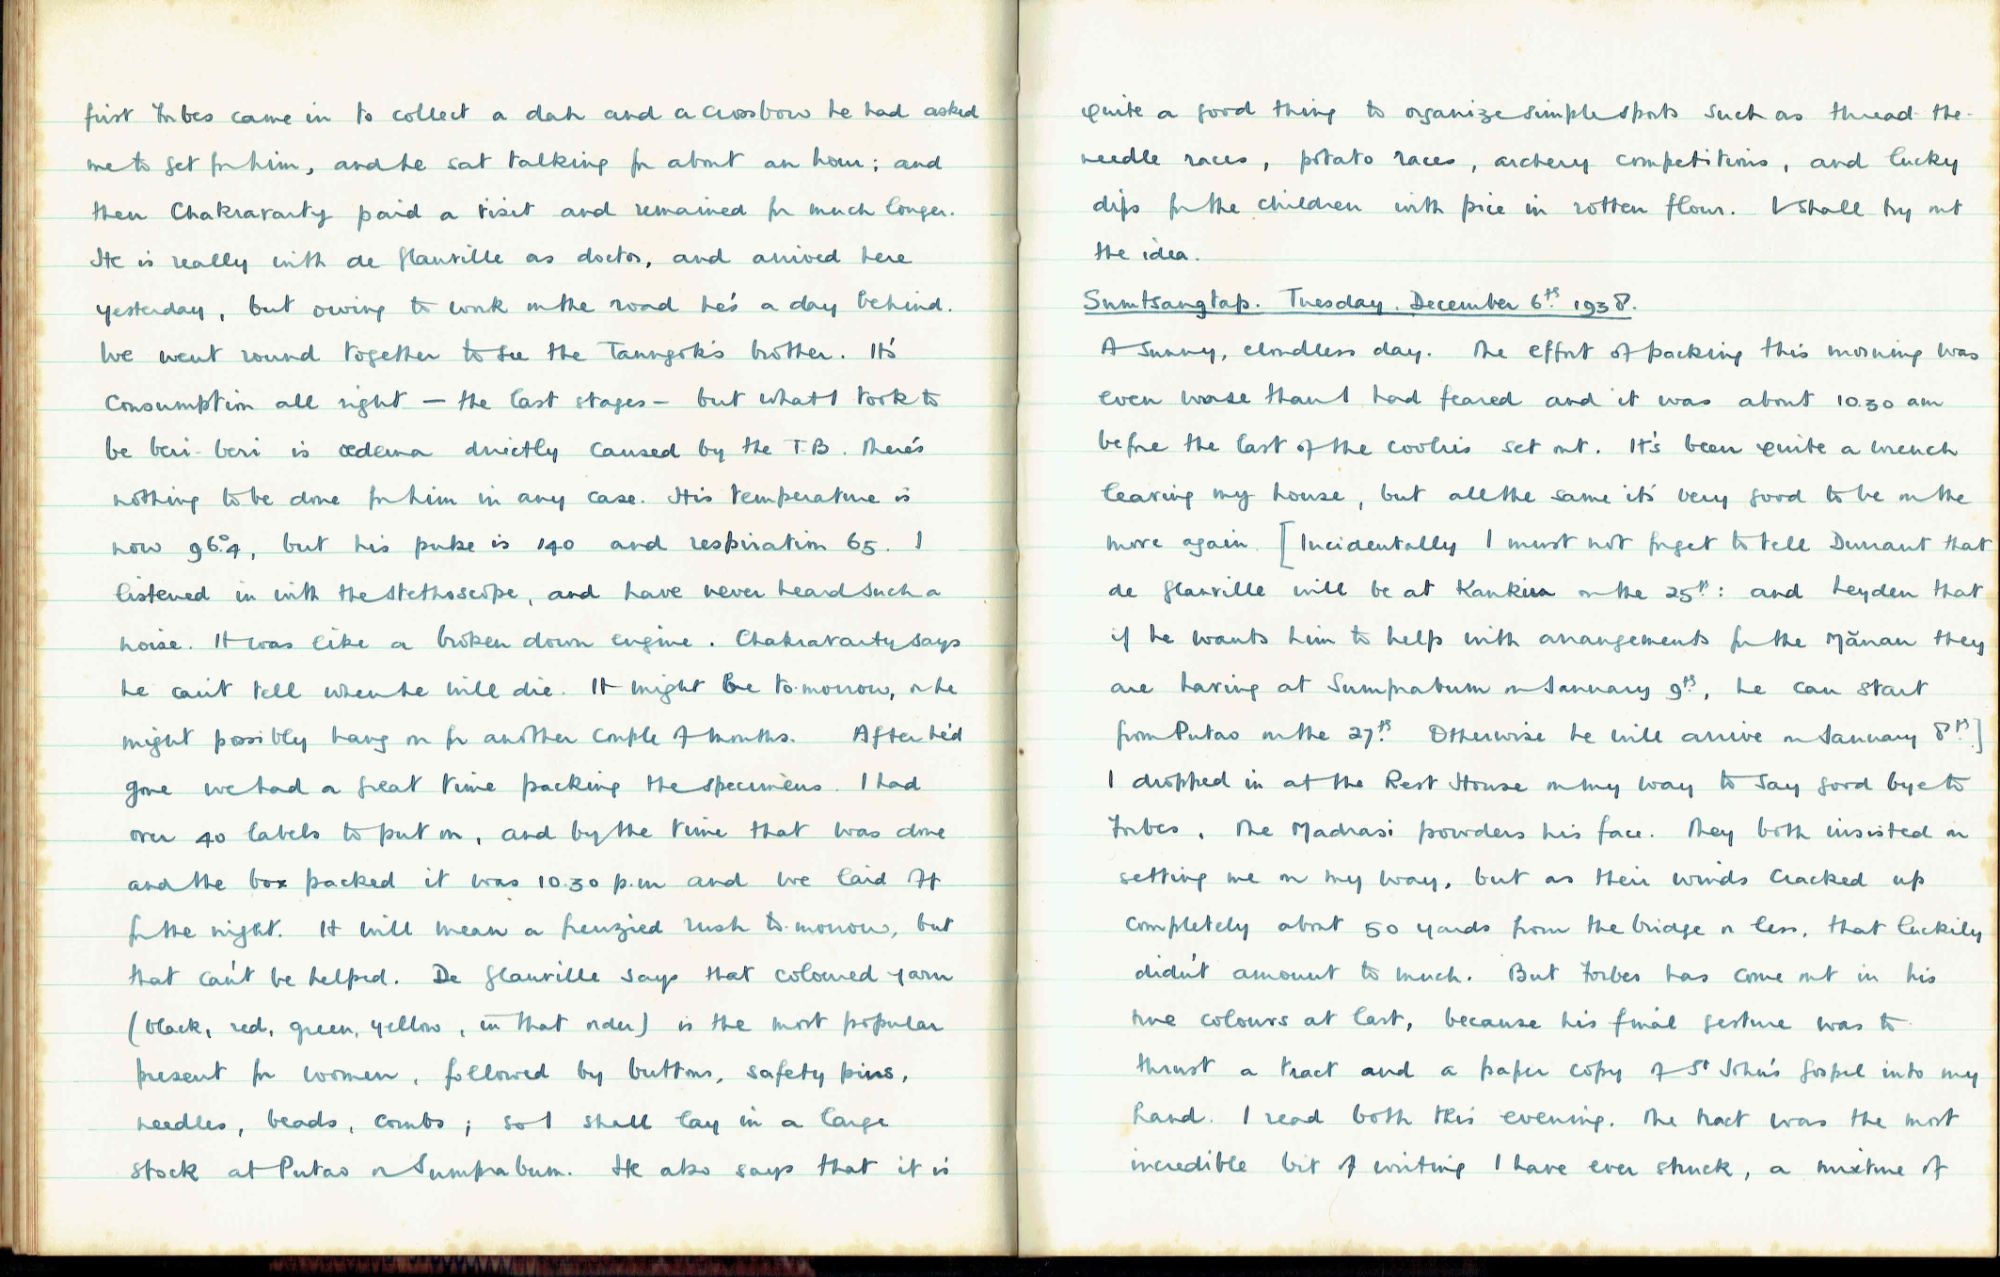 first Forbes came in to collect a dah and a crossbow he had asked
me to get for him, and he sat talking for about an hour; and
then Chakravarty paid a visit and remained for much longer.
He is really with de Glanville as doctor, and arrived here
yesterday, but owing to work on the road he's a day behind.
We went round together to see the Taungok's brother. It's
consumption all right – the last stages – but what I took to
be beri-beri is œdema directly caused by the T.B. There's
nothing to be done for him in any case. His temperature is
now 96.°4, but his pulse is 140 and respiration 65. I
listened in with the stethoscope, and have never heard such a
noise. It was like a broken down engine. Chakravarty says
he can't tell when he will die. It might be to-morrow, or he
might possibly hang on for another couple of months. After he'd
gone we had a great time packing the specimens. I had
over 40 labels to put on, and by the time that was done
and the box packed it was 10.30 p.m and we laid off
for the night. It will mean a frenzied rush to-morrow, but
that can't be helped. De Glanville says that coloured yarn
(black, red, green, yellow, in that order) is the most popular
present for women, followed by buttons, safety pins,
needles, beads, combs; so I shall lay in a large
stock at Putao or Sumprabum. He also says that it is
quite a good thing to organize simple sports such as thread-the-
needle races, potato races, archery competitions, and lucky
dips for the children with pice in rotten flour. I shall try out
the idea.
Sumtsangtap. Tuesday. December 6th. 1938.
A sunny, cloudless day. The effort of packing this morning was
even worse than I had feared and it was about 10.30 am
before the last of the coolies set out. It's been quite a wrench
leaving my house, but all the same it's very good to be on the
move again. [Incidentally I must not forget to tell Durrant that
de Glanville will be at Kankiu on the 25th: and Leyden that
if he wants him to help with arrangements for the Mănau they
are having at Sumprabum on January 9th, he can start
from Putao on the 27th. Otherwise he will arrive on January 8th]
I dropped in at the Rest House on my way to say good bye to
Forbes. The Madrasi powders his face. They both insisted on
setting me on my way, but as their winds cracked up
completely about 50 yards from the bridge or less, that luckily
didn't amount to much. But Forbes has come out in his
true colours at last, because his final gesture was to
thrust a tract and a paper copy of St John's gospel into my
hand. I read both this evening. The tract was the most
incredible bit of writing I have ever struck, a mixture of